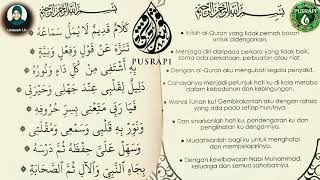 بِسْمِ اللهِ الرَّحْمٰنِ الرَّحِيْمِ
PUSRAPI
بِسْمِ اللهِ الرَّحْمٰنِ الرَّحِيْمِ
PUSRAPI
Ustazah Lin
كَلَامٌ قَدِيْمٌ لَا يُمَلُّ سَمَاعُهُ
تَنَزَّهَ عَنْ قَوْلٍ وَفِعْلٍ وَنِيَّةٍ
بِهِ أَشْتَفِي مِنْ كُلِّ دَاءٍ وَنُوْرُهُ
دَلِيْلٌ لِقَلْبِي عِنْدَ جَهْلِي وَحَيْرَتِي
فَيَا رَبِّ مَتِّعْنِي بِسِرِّ حُرُوْفِهِ
وَنَوِّرْ بِهِ قَلْبِي وَسَمْعِي وَمُقْلَتِي
وَسَهِّلْ عَلَيَّ حِفْظَهُ ثُمَّ دَرْسَهُ
بِجَاهِ النَّبِيِّ وَالْآلِ ثُمَّ الصَّحَابَةِ
Inilah al-Quran yang tidak pernah bosan untuk didengarkan.
Menjaga diri daripada perkara yang tidak baik, sama ada perkataan, perbuatan atau niat.
Dengan al-Quran aku mengubati segala penyakit.
Cahayanya menjadi petunjuk hati ku di kala meraba dalam kebodohan dan kebingungan.
Wahai Tuhan ku! Gembirakanlah aku dengan rahsia yang ada pada setiap hurufnya.
Dan sinarkanlah hati ku, pendengaran ku dan penglihatan ku dengannya.
Mudahkanlah bagi ku untuk menghafal dan mempelajarinya.
Dengan kewibawaan Nabi Muhammad, keluarga dan semua sahabatnya.